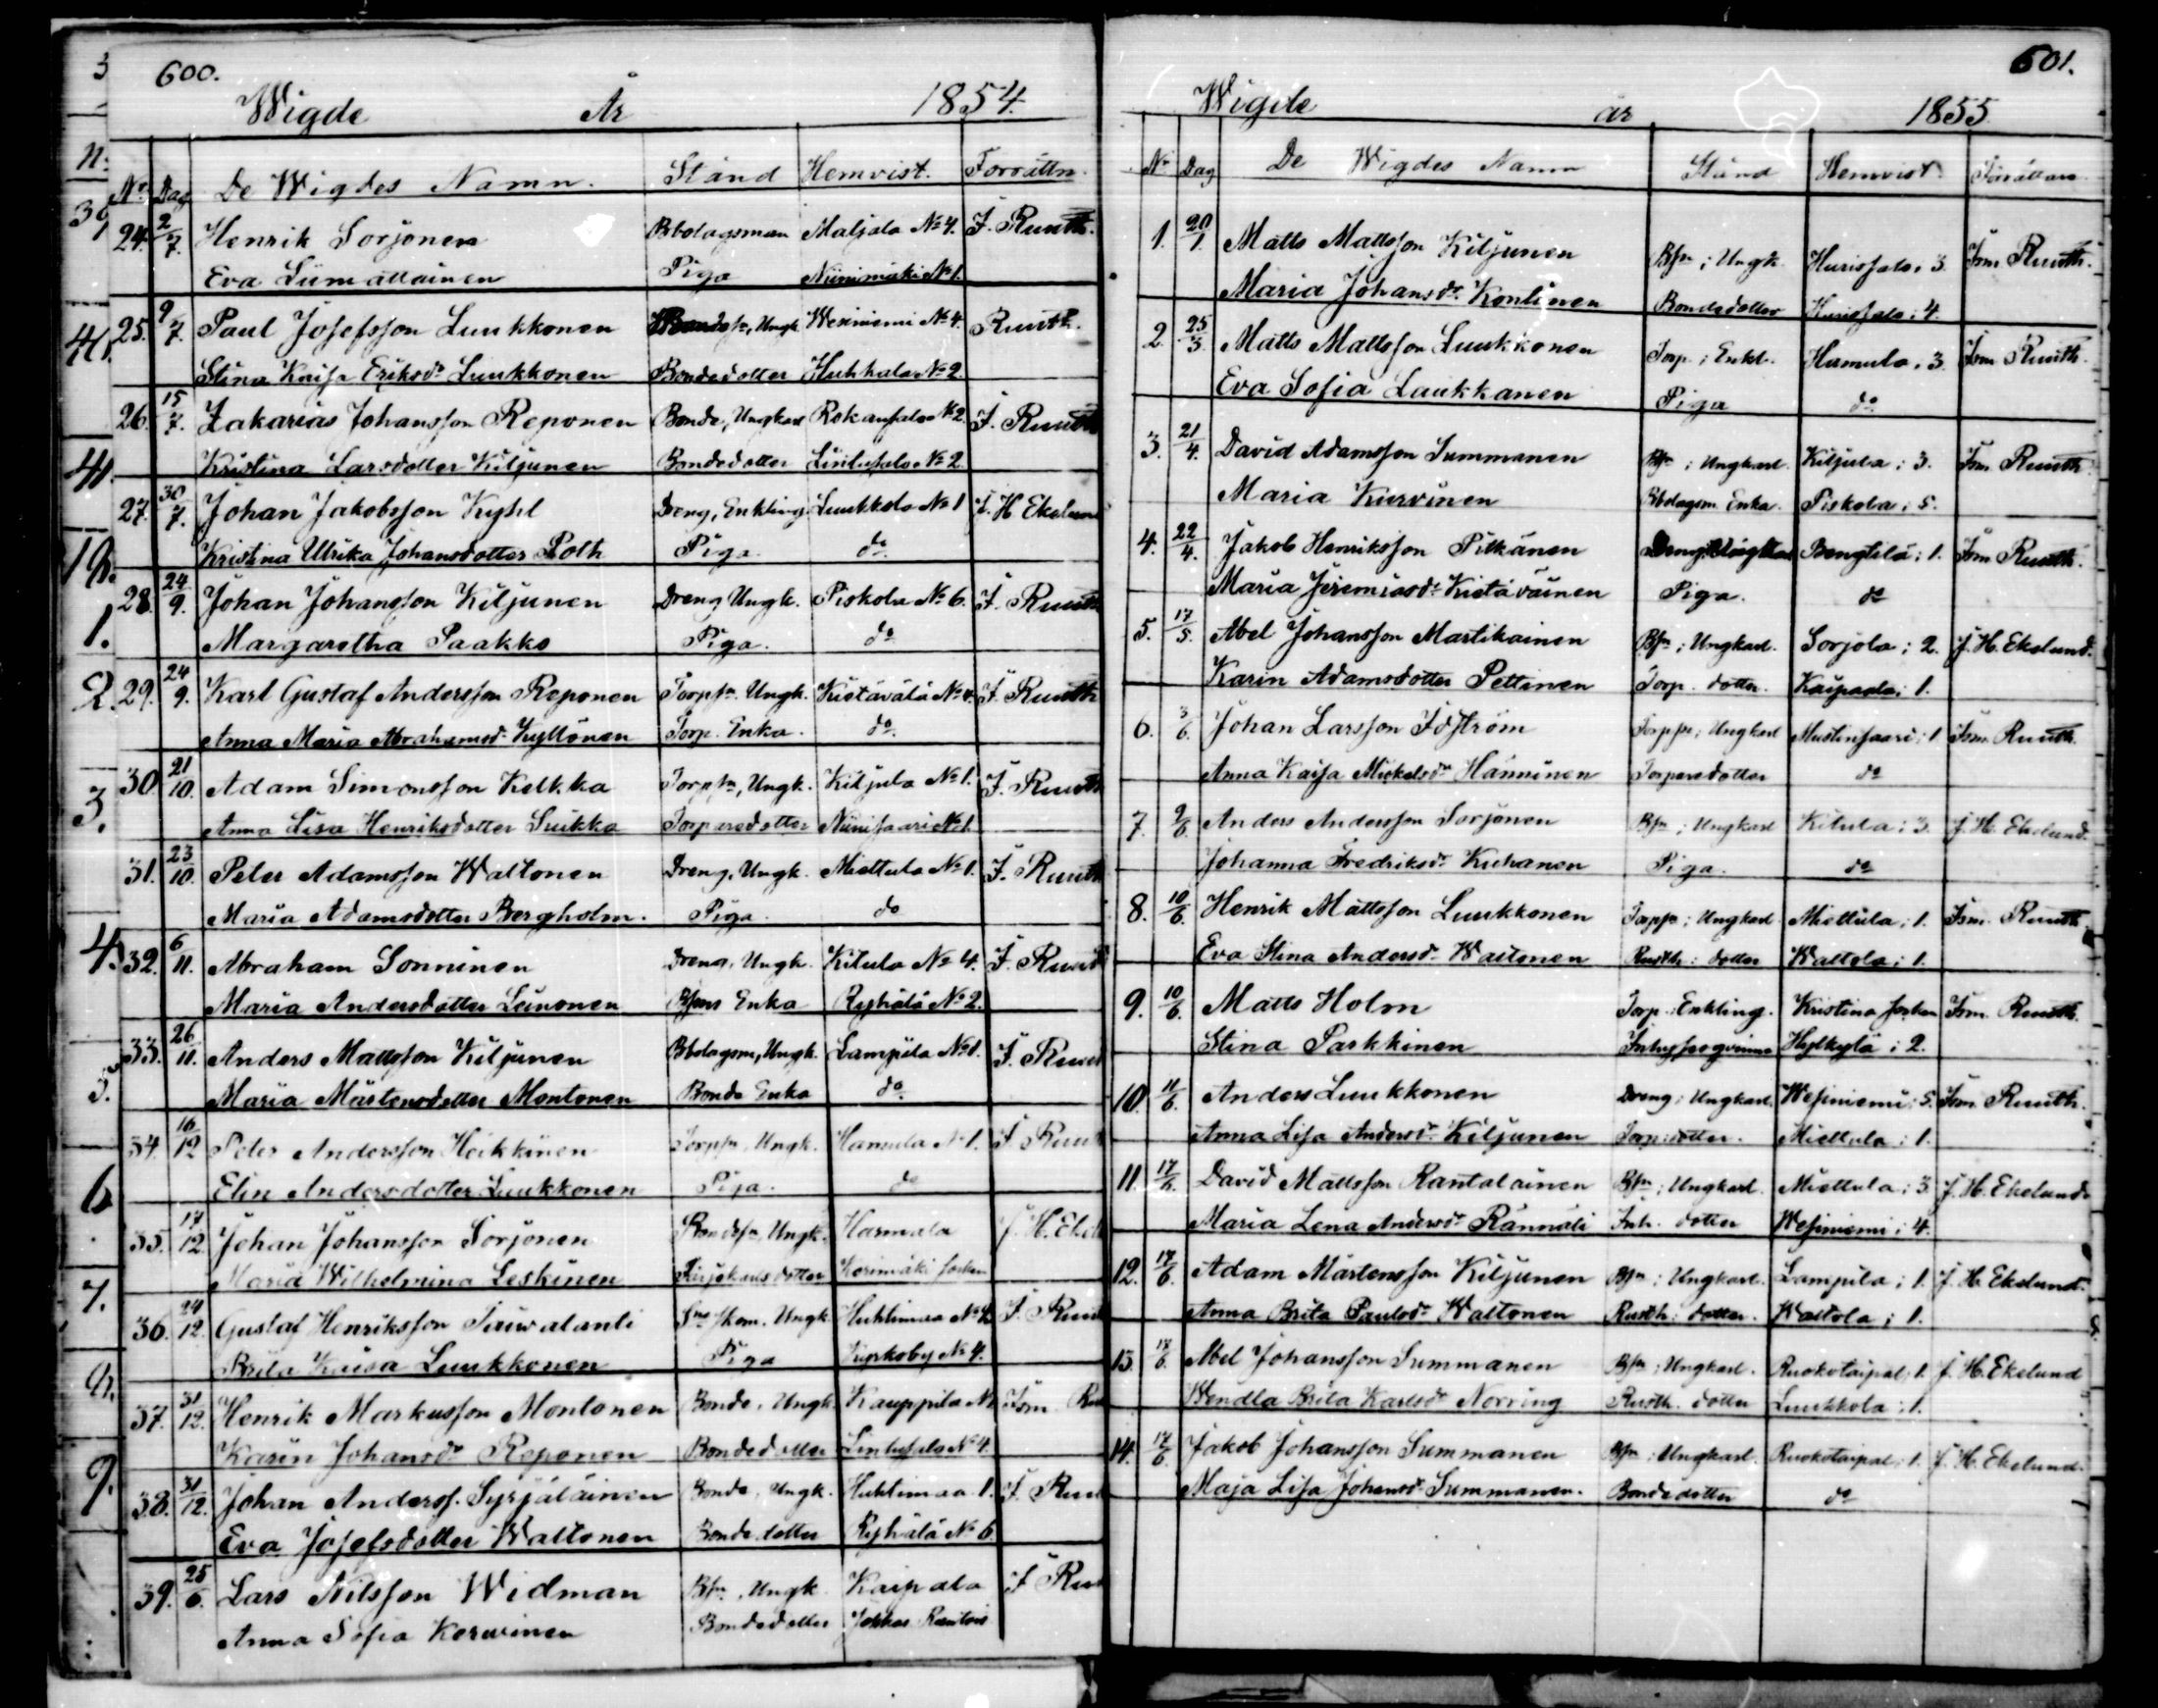 600.
Wigde År 1854.
No. Dag De Wigdes Namn. Stånd Hemvist. Förrättn.
24. 2/7. Henrik Sorjonen Bbolagsman Maljala No 4. F. Ruuth.
Eva Liimattainen Piga Niinimäki No 1.
25. 9/7. Paul Josefsson Luukkonen Bondesn, Ungk. Wesiniemi No 4. Ruuth.
Stina Kaisa Eriksdr Luukkonen Bondedotter Huhhala No 2.
26. 15/7. Zakarias Johansson Reponen Bonde, Ungkarl No 2. F. Ruuth
Kristina Larsdotter Kiljunen Bondedotter Lintusalo No 2.
27. 30/7. Johan Jakobsson Kyhl Dreng, Enkling Luukkola No 1 J. H Ekelund
Kristina Ulrika Johansdotter Poth Piga. do.
28. 24/9. Johan Johansson Kiljunen Dreng Ungk. Piskola No 6. F. Ruuth
Margaretha Paakko Piga. do
29. 24/9. Karl Gustaf Andersson Reponen Torpsn. Ungk. Kietävälä No 4. F. Ruuth
Anna Maria Abrahamsd. Kyllönen Torp. Enka. do.
30 21/10. Adam Simonsson Kelkka Torpsn, Ungk. Kiljula No 1. F. Ruuth
Anna Lisa Henriksdotter Suikka Torparedotter Niinisaari No 1.
31. 23/10. Peter Adamsson Waltonen Dreng, Ungk. Miettula No 1. F. Ruuth
Maria Adamsdotter Bergholm. Piga. do
32. 6/11. Abraham Sonninen Dreng, Ungk. Kitula No 4. F. Ruuth
Maria Andersdotter Leinonen Bsons Enka Ryhälä No 2.
33. 26/11. Anders Mattsson Kiljunen Bbolagsm, Ungk. Lampila No 1. F. Ruuth
Maria Mårtensdotter Montonen Bonde Enka do.
34. 16/12 Peter Andersson Heikkinen Torpsn, Ungk. Hamula No 1. F. Ruuth
Elin Andersdotter Luukkonen Piga. do
35. 17/12 Johan Johansson Sorjonen Bondesn, Ungk. Harmala J. H. Ekel
Maria Wilhelmina Leskinen dotter Kerimäki socken
36. 24/12. Gustaf Henriksson Ungk. Huhtimaa No F. Ruuth
Brita Kaisa Luukkonen Piga Kyrkoby No 4.
37. 31/12. Henrik Markusson Montonen Bonde, Ungk. Kauppila No Fsm. Ru
Karin Johansdr Reponen Bondedotter Lintusalo No 4.
38. 31/12. Johan Anderss. Syrjäläinen Bonde, Ungk. Huhtimaa 1. F. Ruu
Eva Josefsdotter Waltonen Bonde dotter Ryhälä No 6
39. 25/6. Lars Nilsson Widman Bsn, Ungk. Kaipala F Ruu
Anna Sofia Korwinen Bondedotter Jokkas
601.
Wigde år 1855
No Dag De Wigdes Namn Stånd Hemvist Förrättare
1. 20/1. Matts Mattsson Kiljunen Bsn; Ungk. Hurissalo; 3. Fsm. Ruuth.
Maria Johansdr. Kontinen Bondedotter Hurissalo; 4.
2. 25/3. Matts Mattsson Luukkonen Torp.; Enkl. Hamula; 3. Fsm. Ruuth.
Eva Sofia Laukkanen Piga do
3. 21/4. David Adamsson Summanen Bsn; Ungkarl. Kiljula; 3. Fsm. Ruuth.
Maria Kurvinen Bbolagsm. Enka. Piskola; 5.
4. 22/4. Jakob Henriksson Pitkänen Dreng; Ungkarl Bengtilä; 1. Fsm Ruuth.
Maria Jeremiasdr. Kietäväinen Piga. do
5. 17/5. Abel Johansson Martikainen Bsn; Ungkarl. Sorjola; 2. J. H. Ekelund.
Karin Adamsdotter Pettinen Torp. dotter. Kaipaala; 1.
6. 3/6. Johan Larsson Idström Torpsn; Ungkarl Mustinsaari; 1 Fsm. Ruuth.
Anna Kaisa Mickelsdr Hänninen Torparedotter do
7. 9/6. Anders Andersson Sorjonen Bsn; Ungkarl Kitula; 3. J. H. Ekelund.
Johanna Fredriksdr. Kuhanen Piga. do
8. 10/6. Henrik Mattsson Luukkonen Torpsn; Ungkarl Miettula; 1. Fsm. Ruuth
Eva Stina Andersd. Waltonen Rusth: dotter Waltola; 1.
9. 10/6. Matts Holm Torp. Enkling. Kristina socken Fsm. Ruuth.
Stina Parkkinen Hylkylä; 2.
10. 11/6. Anders Luukkonen Dreng; Ungkarl. Wesiniemi; 5. Fsm. Ruuth.
Anna Lisa Andersdr. Kiljunen Torp: dotter. Miettula; 1.
11. 17/6. David Mattsson Rantalainen Bsn; Ungkarl. Miettula; 3. J. H. Ekelund.
Maria Lena Andersdr Rännäli Inh. dotter Wesiniemi; 4.
12. 17/6. Adam Mårtensson Kiljunen Bsn; Ungkarl. Lampila; 1. J. H. Ekelund.
Anna Brita Paulsdr Waltonen Rusth: dotter. Waltola; 1.
13. 17/6. Abel Johansson Summanen Bsn; Ungkarl. Ruokotaipal; 1. J. H. Ekelund
Wendla Brita Karlsdr Norring Rusth. dotter Luukkola; 1.
14. 17/6. Jakob Johansson Summanen Bsn; Ungkarl. Ruokotaipal; 1. J. H. Ekelund.
Maja Lisa Johansdr Summanen. Bondedotter do